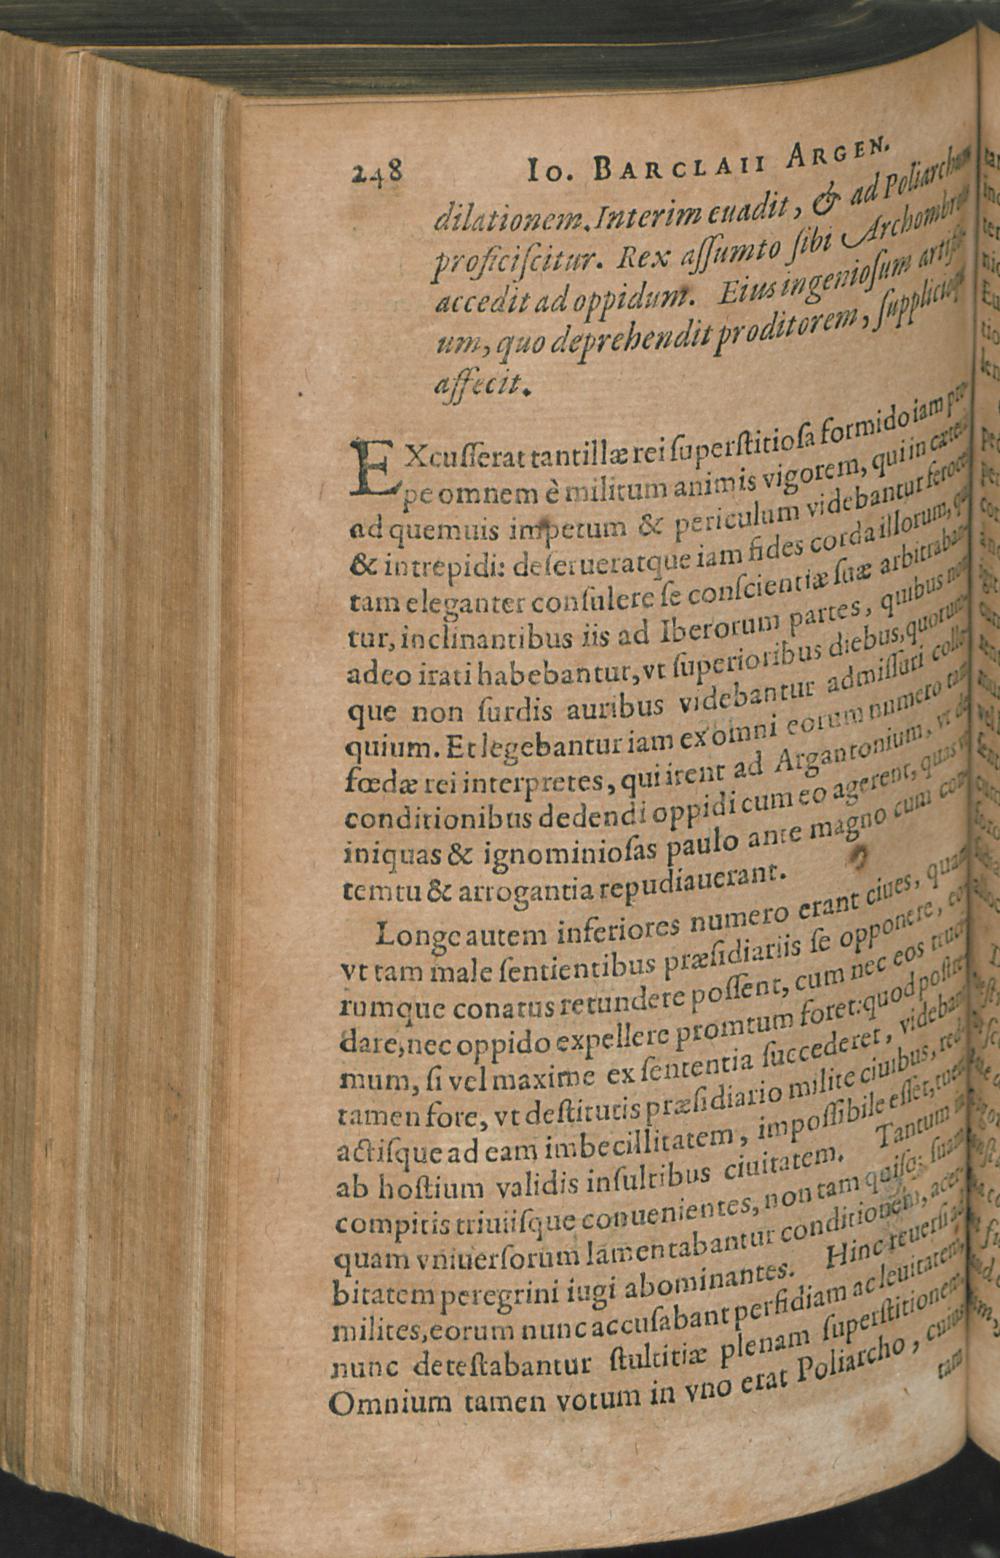 248 Io. BARCLAII ARGEN.
dilationem. Interim euadit, & ad Poliarchum
proficiſcitur. Rex aſſumto ſibi Archombro
accedit ad oppidum. Eius ingenioſum artifi-
um, quo deprehendit proditorem, ſupplicio
affecit.
EXcuſſerat tantillæ rei ſuperſtitioſa formido iam pro-
pe omnem è militum animis vigorem, qui in cæte
ad quemuis impetum & periculum videbantur feroces
& intrepidi: deſerueratque iam fides corda illorum,
tam eleganter conſulere ſe conſcientiæ ſuæ arbitraban
tur, inclinantibus iis ad Iberorum partes, quibus non
adeo irati habebantur, vt ſuperioribus diebus, quorum
que non ſurdis auribus videbantur admiſſuri collo
quium. Et legebantur iam ex omni eorum numero tam
fœdæ rei interpretes, qui irent ad Argantonium, vt de
conditionibus dedendi oppidi cum eo agerent, quas
iniquas & ignominioſas paulo ante magno cum con
temtu & arrogantia repudiauerant.
Longe autem inferiores numero erant ciues, quam
vt tam male ſentientibus præſidiariis ſe opponere, eo
rumque conatus retundere poſſent, cum nec eos truci
dare, nec oppido expellere promtum foret: quod poſtre
mum, ſi vel maxime ex ſententia ſuccederet, videbam
tamen fore, vt deſtitutis præſidiario milite ciuibus, red
actiſque ad eam imbecillitatem, impoſſibile eſſet, tueri
ab hoſtium validis inſultibus ciuitatem. Tantum
compitis triuiiſque conuenientes, non tam quiſq; ſuam
quam vniuerſorum lamentabantur conditionem, acer
bitatem peregrini iugi abominantes. Hinc reuerſi
milites, eorum nunc accuſabant perfidiam ac leuitatem,
nunc deteſtabantur ſtultitiæ plenam ſuperſtitionem.
Omnium tamen votum in vno erat Poliarcho, cuius
tam